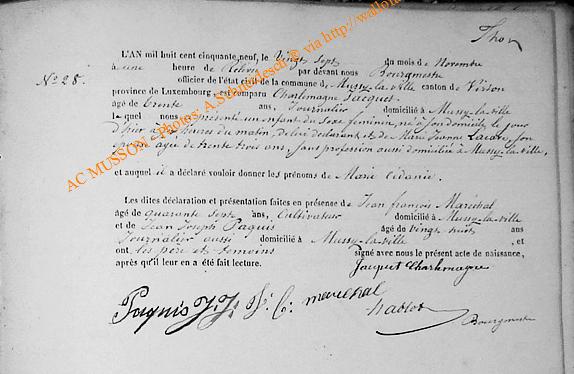 Thon
L'AN mil huit cent cinquante, neuf, le Vingt Sept du mois de Novembre
à une heure de Relevée par devant nous Bourgmestre
N° 28. officier de l'état civil de la commune de Mussy-la-ville canton de Virton
province de Luxembourg, est comparu Charlemagne Jacquet
âgé de trente ans, Journalier domicilié à Mussy-la-ville
lequel nous a présenté un enfant du Sexe féminin, né à son domicile le jour
d'hier à heures du matin, de lui déclarant et de Marie Jeanne son
épouse agée de trente trois ans, sans profession aussi domicilié à Mussy-la-ville,
et auquel il a déclaré vouloir donner les prénoms de Marie
Les dites déclaration et présentation faites en présence de Jean françois Maréchal
âgé de quarante Sept ans, Cultivateur domicilié à Mussy-la-ville
et de Jean Joseph Paquis âgé de vingt huit ans
Journalier aussi domicilié à Mussy-la-ville, et
ont les père et témoins signé avec nous le présent acte de naissance,
après qu'il en a été fait lecture. Jacquet Charlemagne
Paquis J. J. F. marechal
Bourgmestre
AC MUSSON - Photos: A. @ via http://wallo